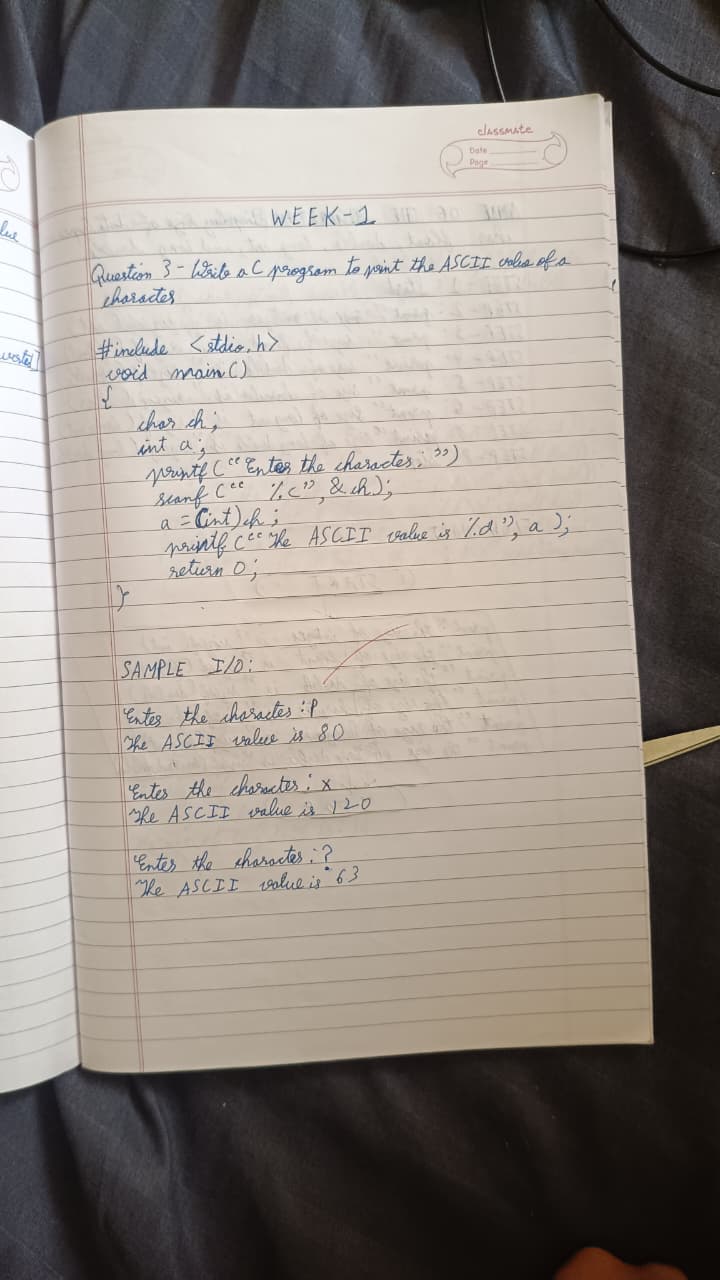 classmate
Date
Page
WEEK-1
Question 3 - Write a C program to print the ASCII value of a
character
#include <stdio.h>
void main()
{
char ch;
int a;
printf("Enter the character: ")
scanf("%c", &ch);
a = (int)ch;
printf("The ASCII value is %d", a);
return 0;
}
SAMPLE I/O:
Enter the character: P
The ASCII value is 80
Enter the character: x
The ASCII value is 120
Enter the character: ?
The ASCII value is 63
lue